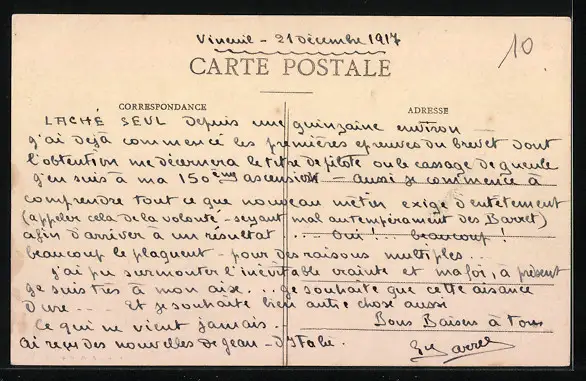 Vineuil - 21 décembre 1917
10
CARTE POSTALE
CORRESPONDANCE
ADRESSE
LACHÉ SEUL depuis une quinzaine environ
j'ai déjà commencé les premières épreuves du brevet dont
l'obtention me décernera le titre de pilote ou le cassage de gueule
j'en suis à ma 150ème ascension - aussi je commence à
comprendre tout ce que nouveau métier exige d'entêtement
(appeler cela de la volonté - seyant mal au tempérament des Barret)
afin d'arriver à un résultat ... Oui !.. beaucoup !
beaucoup le plaquent - pour des raisons multiples ..
j'ai pu surmonter l'inévitable crainte et ma foi, à présent
je suis très à mon aise... je souhaite que cette aisance
dure .... Et je souhaite bien autre chose aussi
Ce qui ne vient jamais. Bons Baisers à Tous
ai reçu des nouvelles de Jean - d'Italie.
Barret